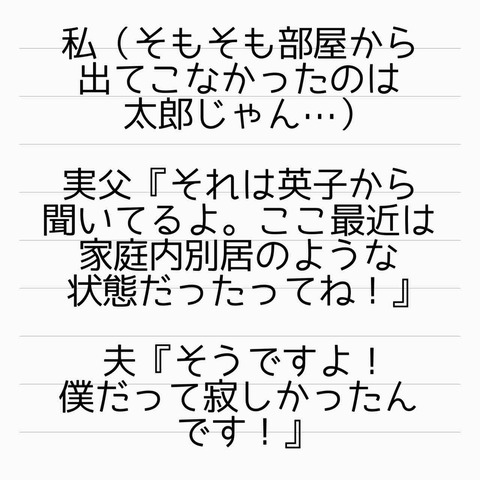 私（そもそも部屋から
出てこなかったのは
太郎じゃん…）
実父『それは英子から
聞いてるよ。ここ最近は
家庭内別居のような
状態だったってね！』
夫『そうですよ！
僕だって寂しかったん
です！』